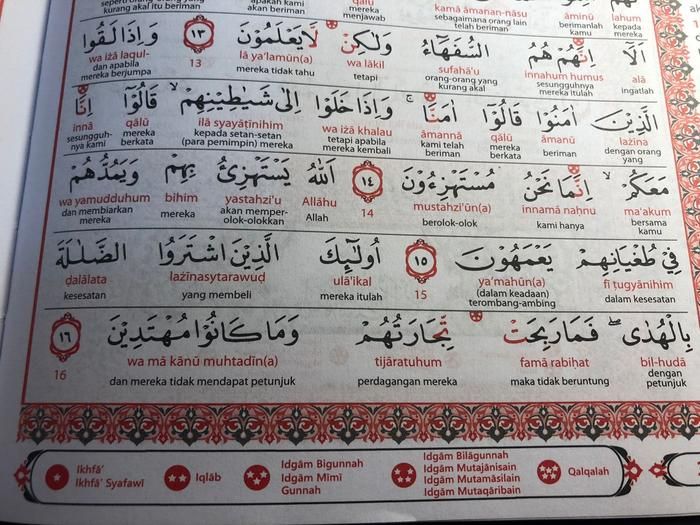 lahum āminū kamā āman an-nāsu qālū
kepada mereka berimanlah kamu sebagaimana orang lain telah beriman mereka menjawab apakah kami akan beriman kurang akal itu beriman
أَلَآ إِنَّهُمْ هُمُ السُّفَهَآءُ وَلٰكِنْ لَا يَعْلَمُوْنَ ١٣ وَإِذَا لَقُوا
alā innahum humus sufahā'u wa lākil lā ya'lamūn(a) 13 wa iżā laqul-
ingatlah sesungguhnya mereka itulah orang-orang yang kurang akal tetapi mereka tidak tahu dan apabila mereka berjumpa
الَّذِيْنَ اٰمَنُوْا قَالُوْٓا اٰمَنَّا ۚ وَإِذَا خَلَوْا إِلٰى شَيٰطِيْنِهِمْ ۙ قَالُوْٓا إِنَّا
lażīna āmanū qālū āmannā wa iżā khalau ilā syayāṭīnihim qālū innā
dengan orang yang beriman mereka berkata kami telah beriman tetapi apabila mereka kembali kepada setan-setan (para pemimpin) mereka mereka berkata sesungguh-nya kami
مَعَكُمْ ۙ إِنَّمَا نَحْنُ مُسْتَهْزِءُوْنَ ١٤ اَللّٰهُ يَسْتَهْزِئُ بِهِمْ وَيَمُدُّهُمْ
ma'akum innamā naḥnu mustahzi'ūn(a) 14 Allāhu yastahzi'u bihim wa yamudduhum
bersama kamu kami hanya berolok-olok Allah akan memper-olok-olokkan mereka dan membiarkan mereka
فِيْ طُغْيَانِهِمْ يَعْمَهُوْنَ ١٥ أُولٰٓئِكَ الَّذِيْنَ اشْتَرَوُا الضَّلٰلَةَ
fī ṭugyānihim ya'mahūn(a) 15 ulā'ikal lażīnasytarawuḍ ḍalālata
dalam kesesatan (dalam keadaan) terombang-ambing mereka itulah yang membeli kesesatan
بِالْهُدٰى ۖ فَمَا رَبِحَتْ تِّجَارَتُهُمْ وَمَا كَانُوْا مُهْتَدِيْنَ ١٦
bil-hudā famā rabiḥat tijāratuhum wa mā kānū muhtadīn(a) 16
dengan petunjuk maka tidak beruntung perdagangan mereka dan mereka tidak mendapat petunjuk
Ikhfā' Ikhfā' Syafawī
Iqlāb
Idgām Bigunnah
Idgām Mīmī
Gunnah
Idgām Bilāgunnah
Idgām Mutajānisain
Idgām Mutamāsilain
Idgām Mutaqāribain
Qalqalah